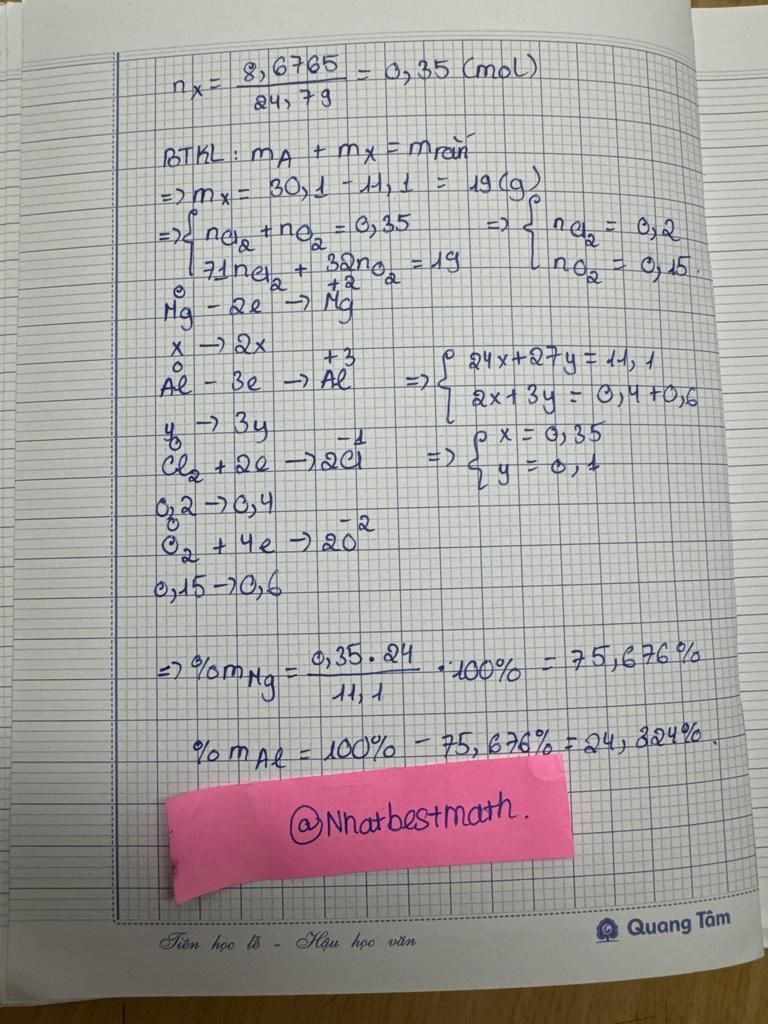 n_X = 8,6765 / 24,79 = 0,35 (mol)
BTKL: m_A + m_X = m_rắn
=> m_X = 30,1 - 11,1 = 19 (g)
=> { n_Cl₂ + n_O₂ = 0,35 => { n_Cl₂ = 0,2
71n_Cl₂ + 32n_O₂ = 19 n_O₂ = 0,15.
Mg⁰ - 2e → Mg⁺²
x → 2x
Al⁰ - 3e → Al⁺³ => { 24x + 27y = 11,1
y → 3y 2x + 3y = 0,4 + 0,6
Cl₂⁰ + 2e → 2Cl⁻¹ => { x = 0,35
0,2 → 0,4 y = 0,1
O₂⁰ + 4e → 2O⁻²
0,15 → 0,6
=> %m_Mg = 0,35 . 24 / 11,1 . 100% = 75,676%
%m_Al = 100% - 75,676% = 24,324%.
@Nhatbestmath.
Tiên học lễ - Hậu học văn
Quang Tâm